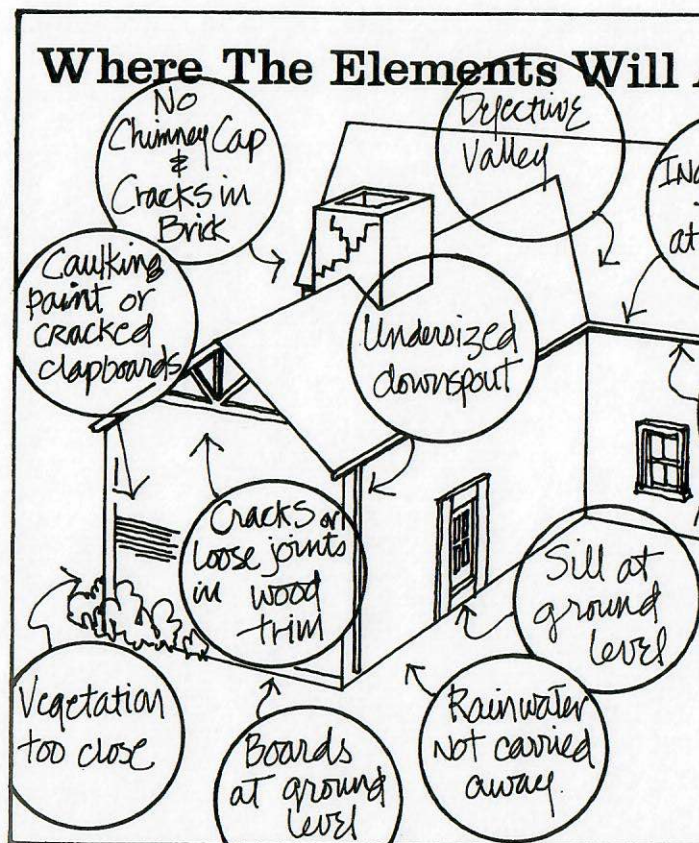 Where The Elements Will
No
Chimney Cap
&
Cracks in
Brick
Defective
Valley
at
Caulking
paint or
cracked
clapboards
Undersized
downspout
Cracks or
loose joints
in wood
trim
Sill at
ground
level
Vegetation
too close
Boards
at ground
level
Rainwater
not carried
away.